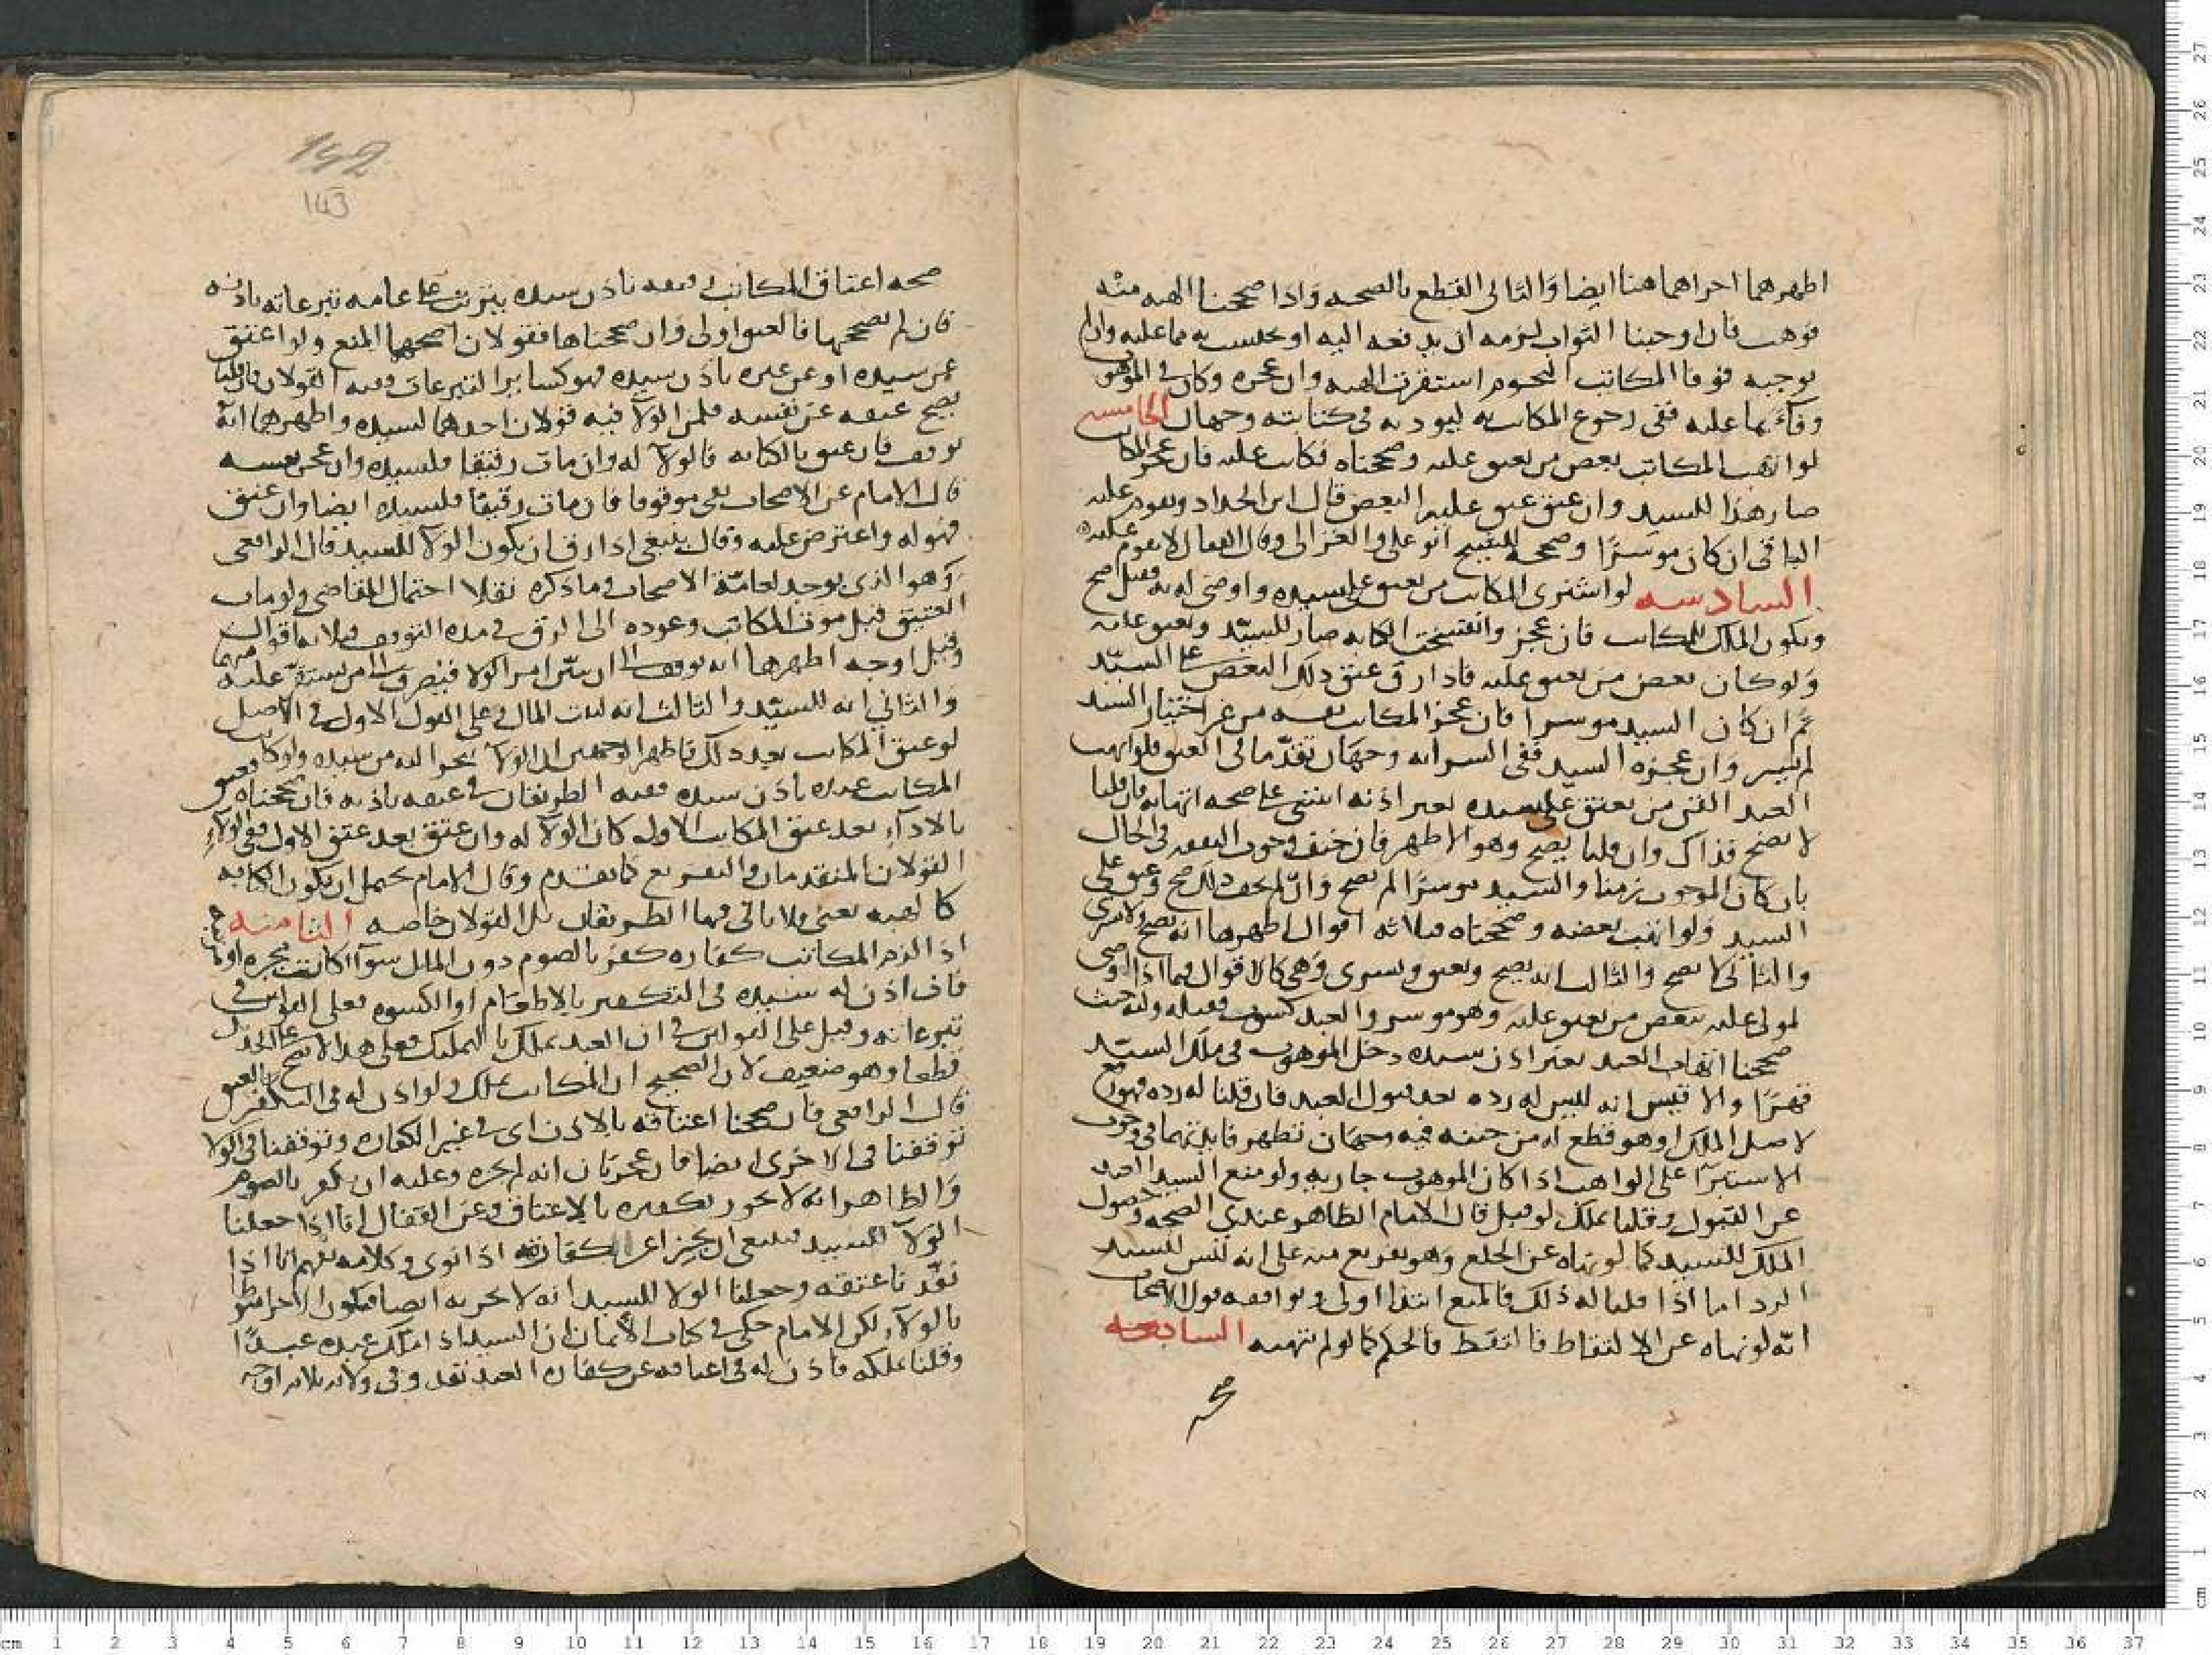 اظهرهما اجراهما هنا ايضا والثاني القطع بالصحه واذا صححنا الهبه منه
فوهب فان اوجبنا الثواب لزمه ان يدفعه اليه او يحاسب به مما عليه وان لم
نوجبه فوفا المكاتب النجوم استقرت الهبه وان عجزه وكان في الموهوب
وفآء بما عليه ففي رجوع المكاتب به ليوديه في كتابته وجهان الخامسه
لو اتهب المكاتب بعض من يعتق عليه وصححناه فكاتب عليه فان عجز المكاتب
صار هذا للسيد وان عتق عتق عليه البعض قال ابن الحداد ويقوم عليه
الباقي ان كان موسرا وصححه الشيخ ابو علي والغزالي وقال القفال لا يقوم عليه
السادسه لو اشترى المكاتب من يعتق على سيده او اوصى له به فقبل صح
ويكون الملك للمكاتب فان عجز وانفسخت الكتابه صار للسيد ويعتق عليه
ولو كان بعض من يعتق عليه فاذا رق عتق ذلك البعض على السيد
ثم ان كان السيد موسرا فان عجز المكاتب نفسه من غير اختيار السيد
لم يسر وان عجزه السيد ففي السرايه وجهان تقدما في العتق فلو اتهب
العبد القن من يعتق على سيده بغير اذنه ابتنى على صحه اتهابه فان قلنا
لا يصح فذاك وان قلنا يصح وهو الاظهر فان خيف وجوب النفقه في الحال
بان كان الموهوب زمنا والسيد موسرا لم يصح وان لم يخف ذلك صح وعتق على
السيد ولو اتهب بعضه وصححناه فثلاثه اقوال اظهرها انه يصح ولا يسري
والثاني لا يصح والثالث انه يصح ويعتق ويسري وهي كالاقوال فيما اذا اوصى
لمولى عليه ببعض من يعتق عليه وهو موسر والعبد كسوب فقبله وليه حيث
صححنا اتهاب العبد بغير اذن سيده دخل الموهوب في ملك السيد
قهرا والاقيس انه ليس له رده بعد قبول العبد فان قلنا له رده فهو رفع
لاصل الملك او هو قطع له من حينه فيه وجهان تظهر فايدتهما في وجوب
الاستبرآ على الواهب اذا كان الموهوب جاريه ولو منع السيد العبد
عن القبول وقلنا يملك لو قبل قال الامام الظاهر عندي الصحه وحصول
الملك للسيد كما لو نهاه عن الخلع وهو تفريع منه على انه ليس للسيد
الرد اما اذا قلنا له ذلك فالمنع ابتدا اولى ويوافقه قول الاصحاب
انه لو نهاه عن الالتقاط فالتقط فالحكم كما لو لم ينهه السابعه
143
صحه اعتاق المكاتب رقيقه باذن سيده يترتب على عامه تبرعاته باذنه
فان لم نصححها فالعتق اولى وان صححناها فقولان اصحهما المنع ولو اعتق
عن سيده او عن غيره باذن سيده فهو كساير التبرعات وفيه القولان فان قلنا
يصح عتقه عن نفسه فلمن الولآ فيه قولان احدهما لسيده واظهرهما انه
يوقف فان عتق بالكتابه فالولآ له وان مات رقيقا فلسيده وان عجز نفسه
قال الامام عن الاصحاب بقي موقوفا فان مات رقيقا فلسيده ايضا وان عتق
فهو له واعترض عليه وقال ينبغي اذا رق ان يكون الولآ للسيد قال الرافعي
وهو الذي يوجد لعامة الاصحاب وما ذكره نقلا احتمال للقاضي ولو مات
العتيق قبل موت المكاتب وعوده الى الرق في مده التوقف فثلاثه اقوال
وقيل اوجه اظهرها انه يوقف الى ان يتبين امر الولا فيصرف الى من يستقر عليه منهما
والثاني انه للسيد والثالث انه لبيت المال وعلى القول الاول في الاصل
لو عتق المكاتب بعد ذلك فاظهر الوجهين ان الولآ ينجر اليه من سيده ولو كاتب
المكاتب عبده باذن سيده ففيه الطريقان في عتقه باذنه فان صححناه فعتق
بالادآء بعد عتق المكاتب الاول كان الولآ له وان عتق بعد عتق الاول ففي الولآء
القولان المتقدمان والتفريع كما تقدم وقال الامام يحتمل ان يكون الكتابه
كالهبه يعني فلا ياتي فيها الطريقان بل القولان خاصه الثامنه
اذا لزم المكاتب كفاره كفر بالصوم دون المال سوآ اكانت مخيره او مرتبه
فان اذن له سيده في التكفير بالاطعام او الكسوه فعلى القولين في
تبرعاته وقيل على القولين في ان العبد يملك بالتمليك فعلى هذا لا يصح على الجديد
قطعا وهو ضعيف لان الصحيح ان المكاتب يملك ولو اذن له في التكفير بالعتق
قال الرافعي فان صححنا اعتاقه بالاذن اي في غير الكفاره وتوقفنا في الولا
توقفنا في الاخرى ايضا فان عجز بان انه لم يجزه وعليه ان يكفر بالصوم
والظاهر انه لا يجوز تكفيره بالاعتاق وعن القفال انا اذا جعلنا
الولآ للسيد فينبغي ان يجزا عن كفارته اذا نوى وكلامه يفهم انا اذا
نفذنا عتقه وجعلنا الولا للسيد انه لا يجزيه ايضا فيكون الاجزا مشروطا
بالولآء لكن الامام حكى في كتاب الايمان ان السيد اذا ملك عبده عبدا
وقلنا يملكه فاذن له في اعتاقه عن كفاره العبد نفذ وفي ولائه ثلاثه اوجه